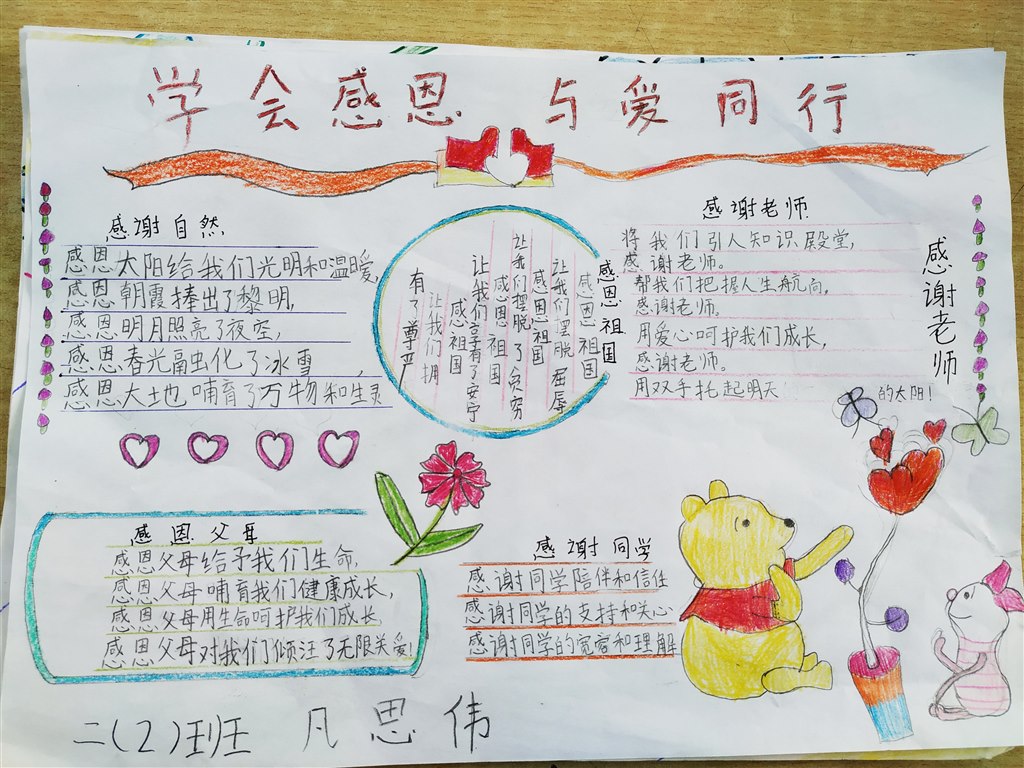 学会感恩 与爱同行
感谢自然
感恩太阳给我们光明和温暖,
感恩朝霞捧出了黎明,
感恩明月照亮了夜空,
感恩春光融化了冰雪,
感恩大地哺育了万物和生灵
感恩祖国
感恩祖国
让我们摆脱屈辱
感恩祖国
让我们摆脱了贫穷
感恩祖国
让我们享有了安宁
感恩祖国
让我们拥
有了尊严
感谢老师
将我们引人知识殿堂,
感谢老师。
帮我们把握人生航向。
感谢老师。
用爱心呵护我们成长,
感谢老师。
用双手托起明天的太阳!
感谢老师
感恩父母
感恩父母给予我们生命,
感恩父母哺育我们健康成长,
感恩父母用生命呵护我们成长
感恩父母对我们倾注了无限关爱!
感谢同学
感谢同学陪伴和信任
感谢同学的支持和关心
感谢同学的宽容和理解
二(2)班 凡思伟